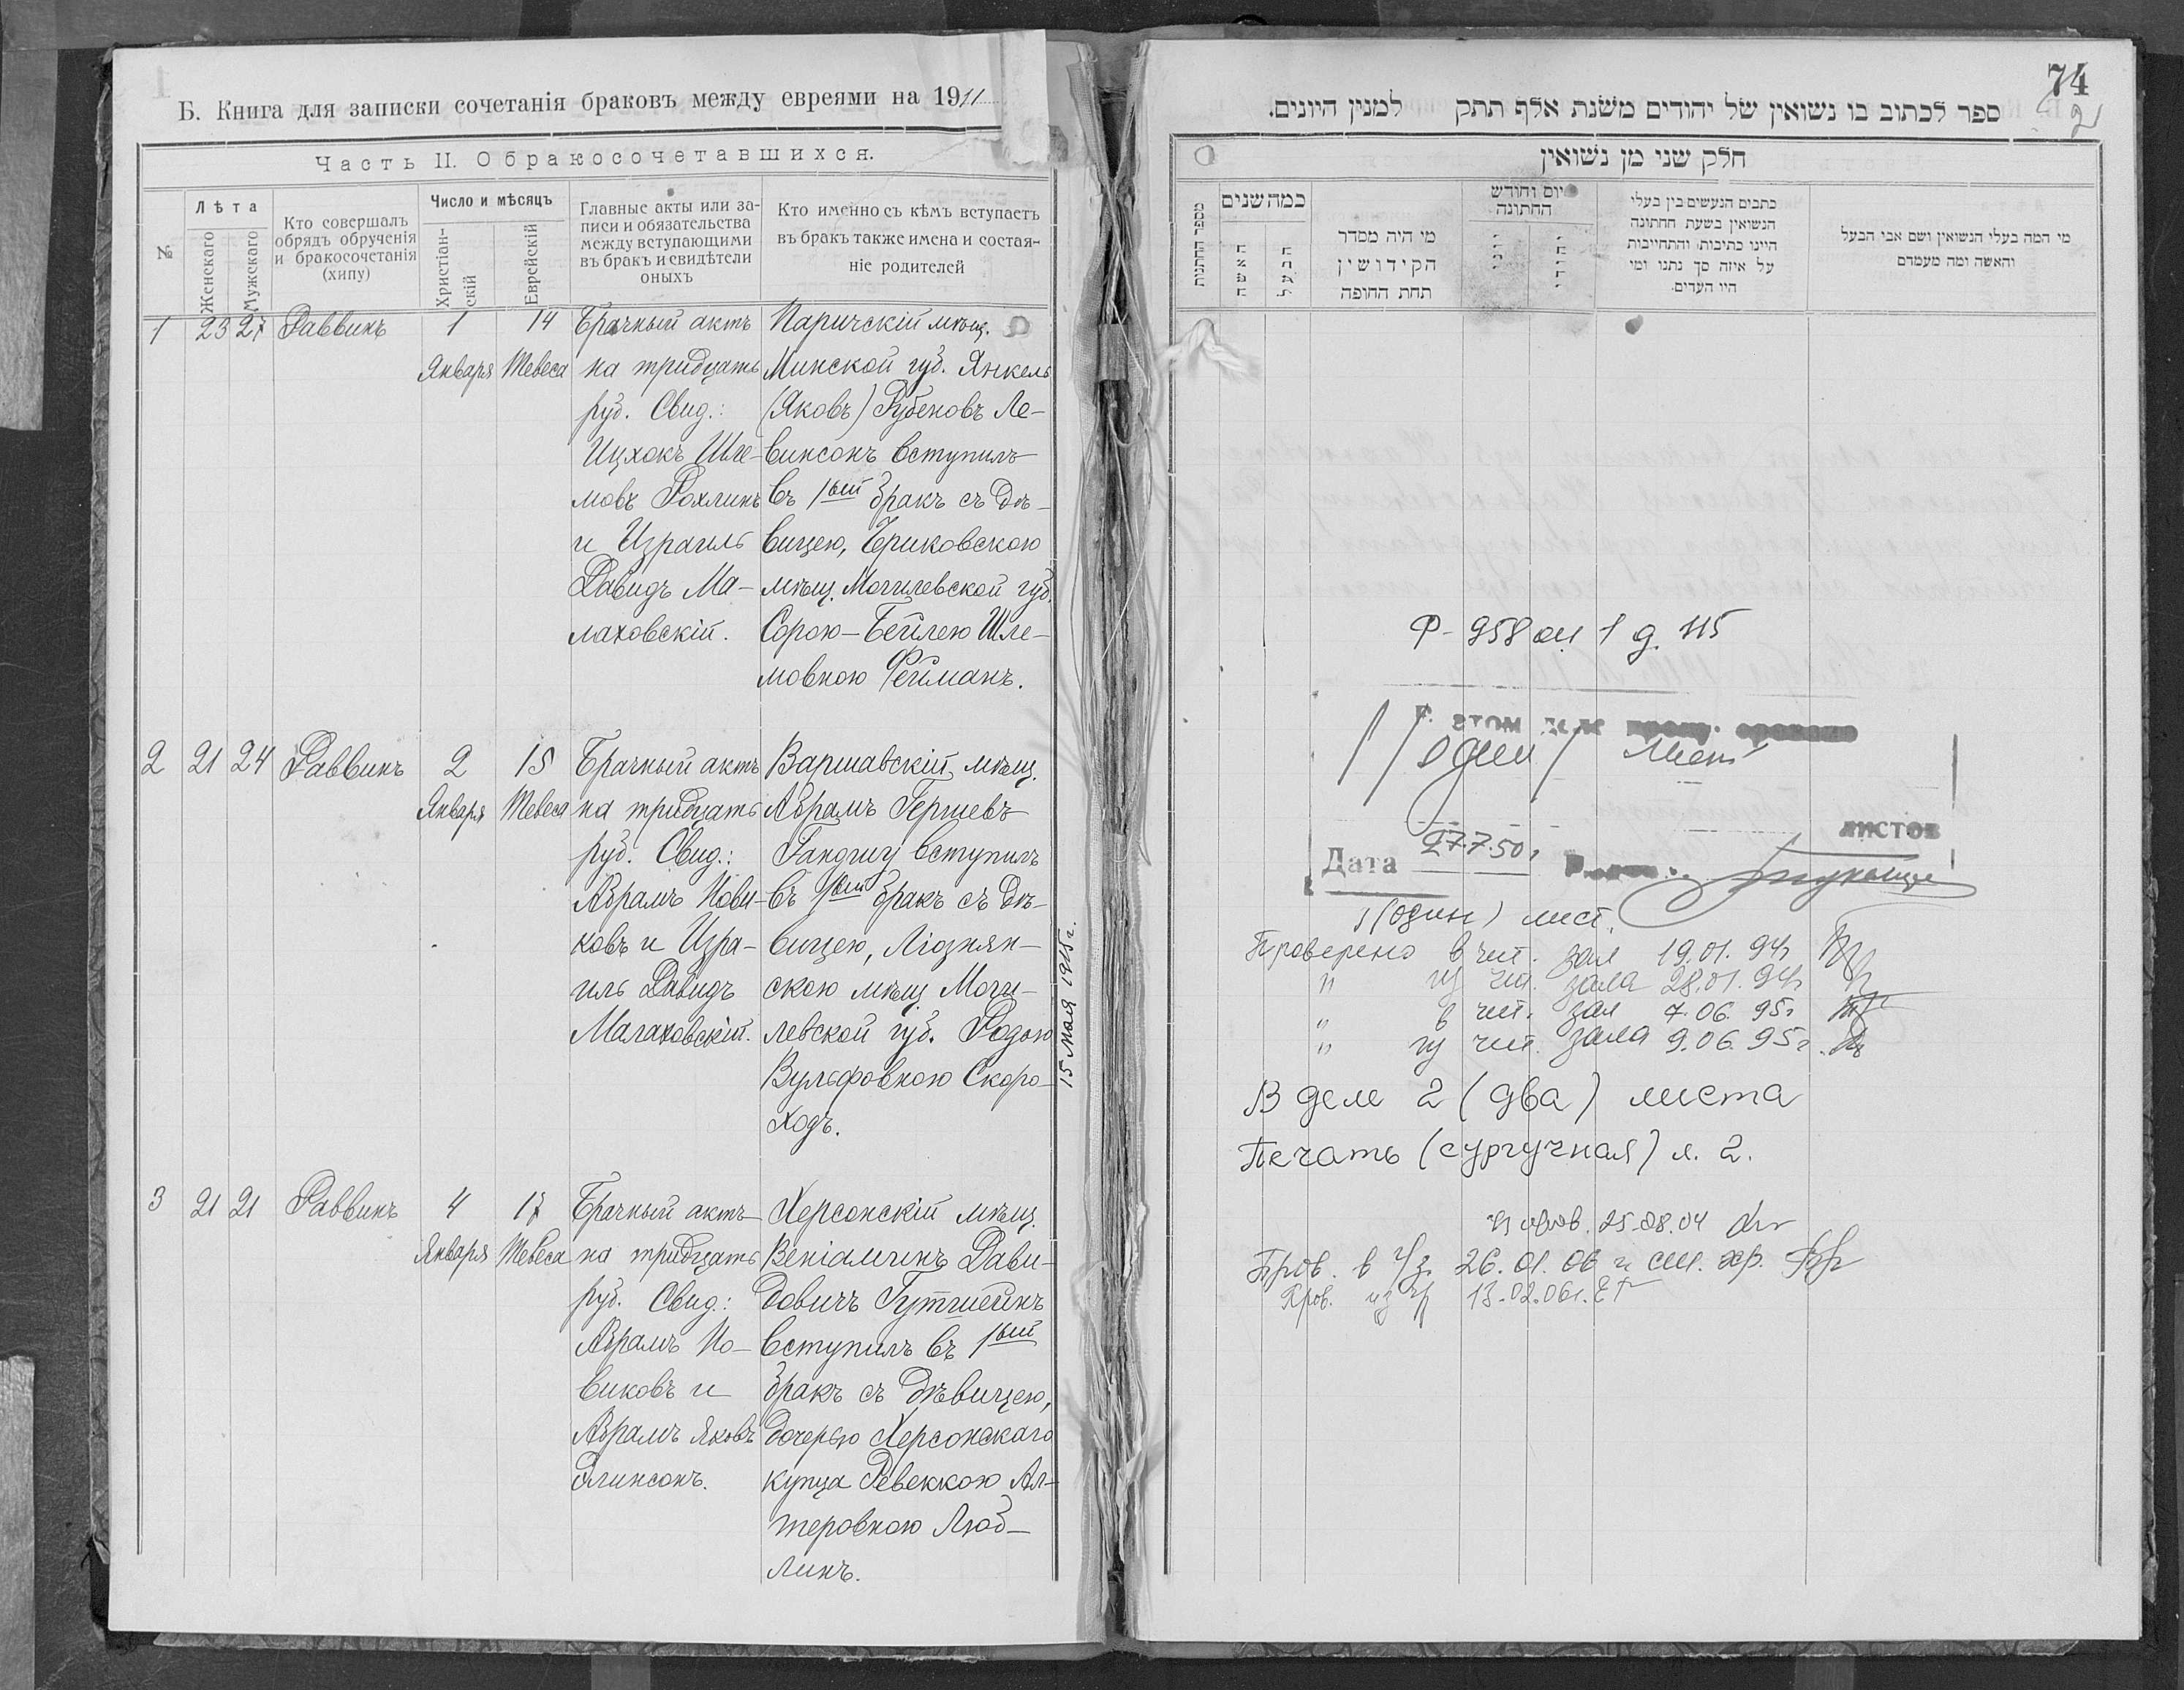 Б. Книга для записки сочетанія браковъ между евреями на 1911
Часть II. О бракосочетавшихся.
№
Лѣта
Женскаго
Мужскаго
Кто совершалъ
обрядъ обрученія
и бракосочетанія
(хипу)
Число и мѣсяцъ
Христіан-
скій
Еврейскій
Главные акты или за-
писи и обязательства
между вступающими
въ бракъ и свидѣтели
оныхъ
Кто именно съ кѣмъ вступаетъ
въ бракъ также имена и состоя-
ніе родителей
1 23 27 Раввинъ 1 14 Брачный актъ Паричскій мѣщ.
Января Тевеса на тридцать Минской губ. Янкель
руб. Свид.: (Яковъ) Рубеновъ Ле-
Ицхокъ Шле- винсонъ вступилъ
мовъ Рохлинъ въ 1ый бракъ съ дѣ-
и Израиль вицею, Чериковскою
Давидъ Ма- мѣщ. Могилевской губ.
лаховскій. Сорою-Бейлею Шле-
мовною Фейманъ.
2 21 24 Раввинъ 2 15 Брачный актъ Варшавскій мѣщ.
Января Тевеса на тридцать Абрамъ Гершевъ
руб. Свид.: Гандшу вступилъ
Абрамъ Нови- въ 1ый бракъ съ дѣ-
ковъ и Изра- вицею, Ліознян-
иль Давидъ скою мѣщ Моги-
Малаховскій. левской губ. Розою
Вульфовною Скоро-
ходъ.
3 21 21 Раввинъ 4 17 Брачный актъ Херсонскій мѣщ.
Января Тевеса на тридцать Веніаминъ Дави-
руб. Свид.: довичъ Гутштейнъ
Абрамъ Но- вступилъ въ 1ый
виковъ и бракъ съ дѣвицею,
Абрамъ Яковъ дочерью Херсонскаго
Элинсонъ. купца Ревеккою Ал-
теровною Люб-
линъ.
15 мая 1915 г.
74
2
ספר לכתוב בו נשואין של יהודים משנת אלף תתק למנין היונים.
חלק שני מן נשואין
מספר החתנות
כמה שנים
האשה
הבעל
מי היה מסדר
הקידושין
תחת החופה
יום וחודש
החתונה
יוני
יהודי
כתבים הנעשים בין בעלי
הנשואין בשעת חחתונה
היינו כתיבות והתחייבות
על איזה סך נתנו ומי
היו העדים.
מי המה בעלי הנשואין ושם אבי הבעל
והאשה ומה מעמדם
Р-958 оп 1 д. 115
этом деле
1 / один / лист
листов
Дата 27.7.50г
1 (один) лист.
Проверено в чит. зал 19.01.94г
" из чит. зала 28.01.94г
" в чит. зал 7.06.95г
" из чит. зала 9.06.95г.
В деле 2 (два) листа
Печать (сургучная) л. 2.
25.08.04
Пров. в ч/з. 26.01.06 г
Пров. из ч/з 13.02.06г.